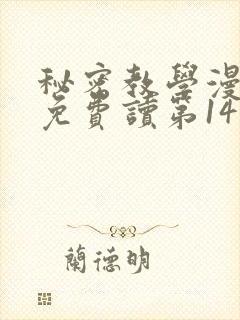 秘密教學漫
免費讀第14
蘭德明